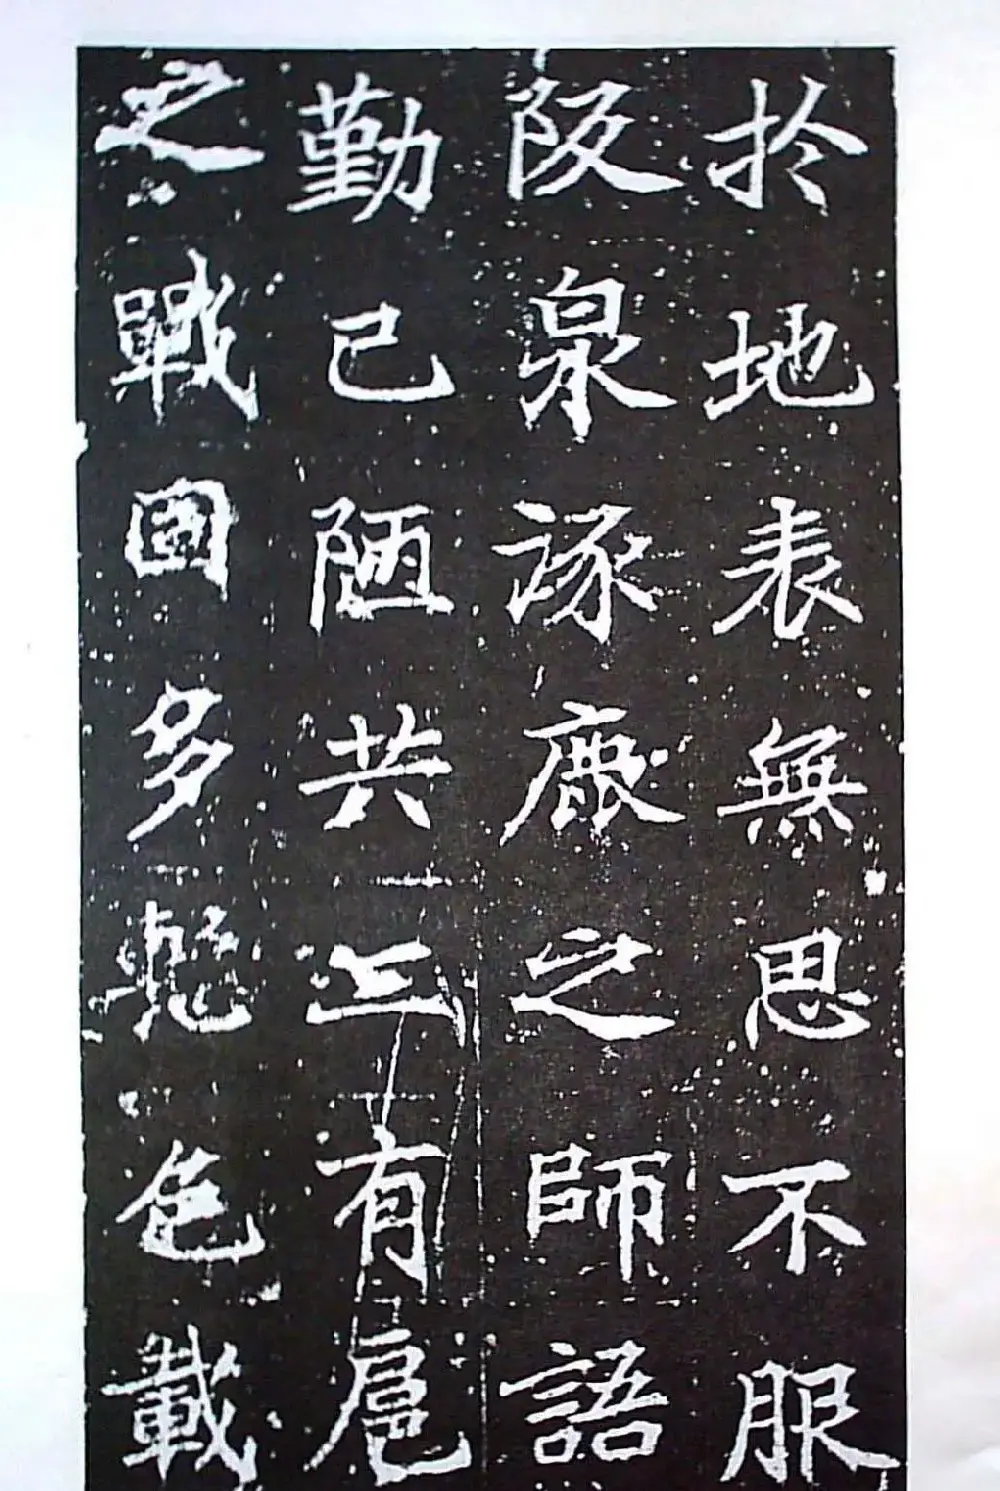 扵地表無思不服
阪泉諑鹿之師語
勤已陋共工有扈
之戰國多慙色載